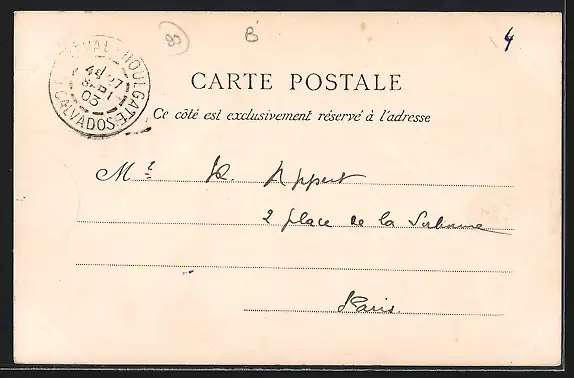 83
B
4
HOULGATE
4E 27
SEPT
03
CALVADOS
CARTE POSTALE
Ce côté est exclusivement réservé à l'adresse
Mr R. Appert
2 place de la Sorbonne
Paris.